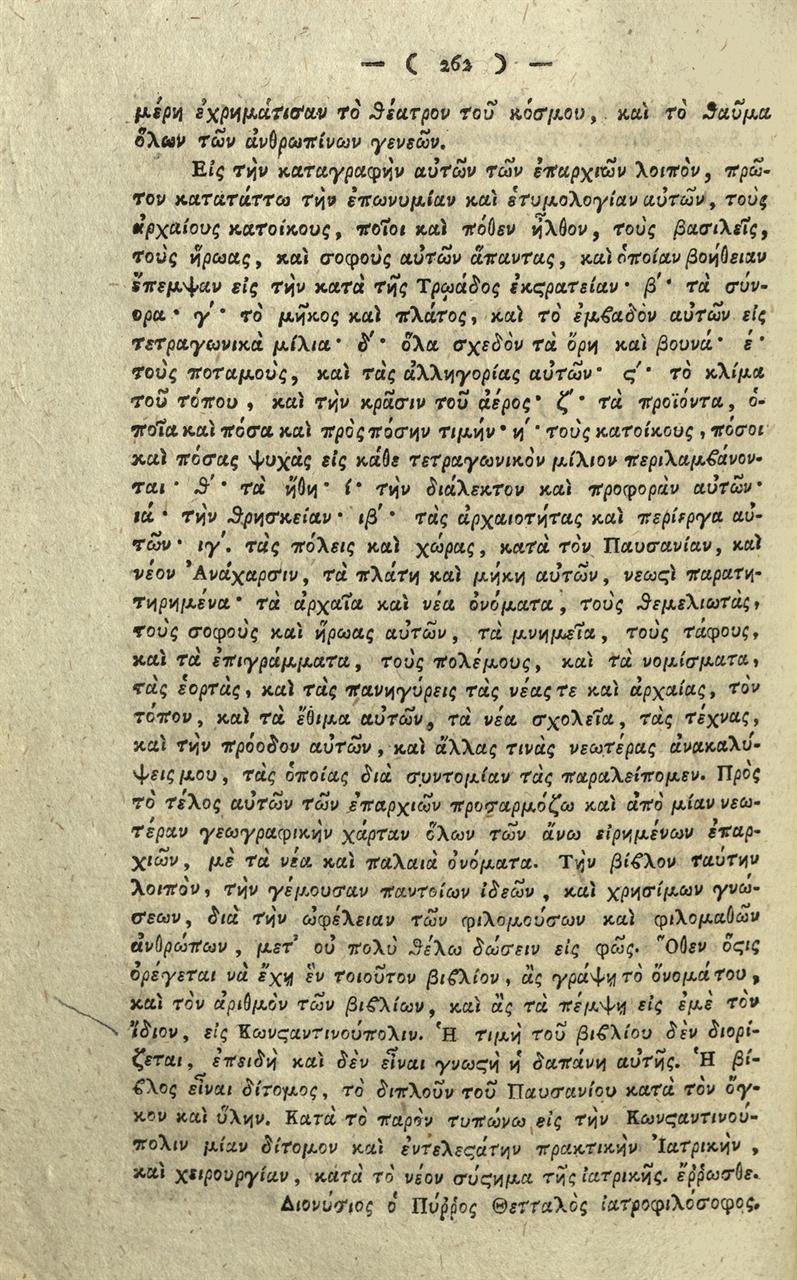 — ( 262 ) —
μέρη ἐχρημάτισαν τὸ θέατρον τοῦ κόσμου, καὶ τὸ θαῦμα
ὅλων τῶν ἀνθρωπίνων γενεῶν.
Εἰς τὴν καταγραφὴν αὐτῶν τῶν ἐπαρχιῶν λοιπὸν, πρῶ-
τον κατατάττω τὴν ἐπωνυμίαν καὶ ἐτυμολογίαν αὐτῶν, τοὺς
ἀρχαίους κατοίκους, ποῖοι καὶ πόθεν ἦλθον, τοὺς βασιλεῖς,
τοὺς ἥρωας, καὶ σοφοὺς αὐτῶν ἅπαντας, καὶ ὁποίαν βοήθειαν
ἔπεμψαν εἰς τὴν κατὰ τῆς Τρωάδος ἐκϛρατείαν· β'· τὰ σύν-
ορα· γ'· τὸ μῆκος καὶ πλάτος, καὶ τὸ ἐμϐαδὸν αὐτῶν εἰς
τετραγωνικὰ μίλια· δ'· ὅλα σχεδὸν τὰ ὄρη καὶ βουνά· έ·
τοὺς ποταμοὺς, καὶ τὰς ἀλληγορίας αὐτῶν· ϛ'· τὸ κλίμα
τοῦ τόπου, καὶ τὴν κρᾶσιν τοῦ ἀέρος· ζ'· τὰ προϊόντα, ὁ-
ποῖα καὶ πόσα καὶ πρὸς πόσην τιμήν· η'· τοὺς κατοίκους, πόσοι
καὶ πόσας ψυχὰς εἰς κάθε τετραγωνικὸν μίλιον περιλαμϐάνον-
ται· θ'· τὰ ἤθη· ί· τὴν διάλεκτον καὶ προφορὰν αὐτῶν·
ιά· τὴν θρησκείαν· ιβ'· τὰς ἀρχαιοτήτας καὶ περίεργα αὐ-
τῶν· ιγ'. τὰς πόλεις καὶ χώρας, κατὰ τὸν Παυσανίαν, καὶ
νέον Ἀνάχαρσιν, τὰ πλάτη καὶ μήκη αὐτῶν, νεωϛὶ παρατη-
τηρημένα· τὰ ἀρχαῖα καὶ νέα ὀνόματα, τοὺς θεμελιωτὰς,
τοὺς σοφοὺς καὶ ἥρωας αὐτῶν, τὰ μνημεῖα, τοὺς τάφους,
καὶ τὰ ἐπιγράμματα, τοὺς πολέμους, καὶ τὰ νομίσματα,
τὰς ἑορτὰς, καὶ τὰς πανηγύρεις τὰς νέας τε καὶ ἀρχαίας, τὸν
τόπον, καὶ τὰ ἔθιμα αὐτῶν, τὰ νέα σχολεῖα, τὰς τέχνας,
καὶ τὴν πρόοδον αὐτῶν, καὶ ἄλλας τινὰς νεωτέρας ἀνακαλύ-
ψεις μου, τὰς ὁποίας διὰ συντομίαν τὰς παραλείπομεν. Πρὸς
τὸ τέλος αὐτῶν τῶν ἐπαρχιῶν προσαρμόζω καὶ ἀπὸ μίαν νεω-
τέραν γεωγραφικὴν χάρταν ὅλων τῶν ἄνω εἰρημένων ἐπαρ-
χιῶν, μὲ τὰ νέα καὶ παλαιὰ ὀνόματα. Τὴν βίϐλον ταύτην
λοιπὸν, τὴν γέμουσαν παντοίων ἰδεῶν, καὶ χρησίμων γνώ-
σεων, διὰ τὴν ὠφέλειαν τῶν φιλομούσων καὶ φιλομαθῶν
ἀνθρώπων, μετ' οὐ πολὺ θέλω δώσειν εἰς φῶς. Ὅθεν ὅϛις
ὀρέγεται νὰ ἔχῃ ἓν τοιοῦτον βιϐλίον, ἂς γράψῃ τὸ ὄνομά του,
καὶ τὸν ἀριθμὸν τῶν βιϐλίων, καὶ ἂς τὰ πέμψῃ εἰς ἐμὲ τὸν
ἴδιον, εἰς Κωνϛαντινούπολιν. Ἡ τιμὴ τοῦ βιϐλίου δὲν διορί-
ζεται, ἐπειδὴ καὶ δὲν εἶναι γνωϛὴ ἡ δαπάνη αὐτῆς. Ἡ βί-
ϐλος εἶναι δίτομος, τὸ διπλοῦν τοῦ Παυσανίου κατὰ τὸν ὄγ-
κον καὶ ὕλην. Κατὰ τὸ παρὸν τυπώνω εἰς τὴν Κωνϛαντινού-
πολιν μίαν δίτομον καὶ ἐντελεϛάτην πρακτικὴν Ἰατρικὴν,
καὶ χειρουργίαν, κατὰ τὸ νέον σύϛημα τῆς ἰατρικῆς. ἔῤῥωσθε.
Διονύσιος ὁ Πύῤῥος Θετταλὸς ἰατροφιλόσοφος.